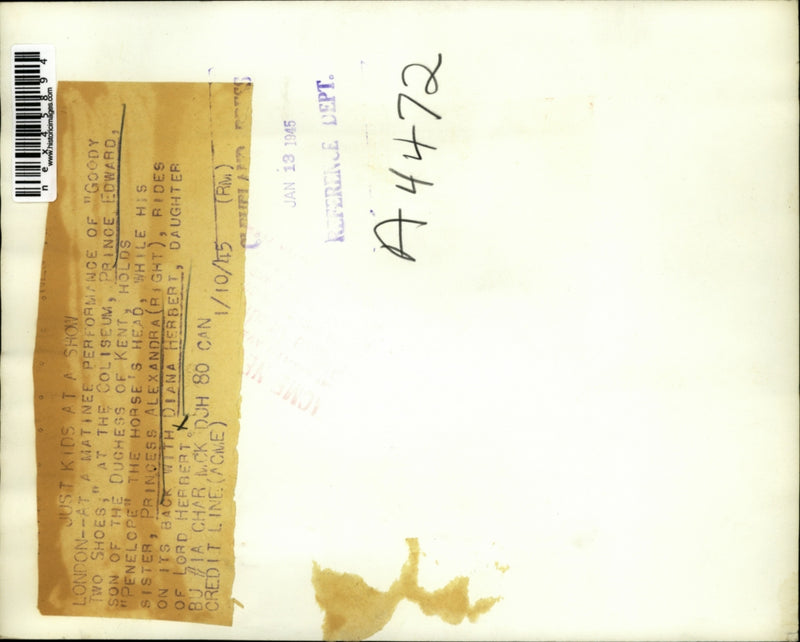 JUST KIDS AT A SHOW
LONDON--AT A MATINEE PERFORMANCE OF "GOODY
TWO SHOES," AT THE COLISEUM, PRINCE EDWARD,
SON OF THE DUCHESS OF KENT, HOLDS
"PENELOPE" THE HORSE'S HEAD, WHILE HIS
SISTER, PRINCESS ALEXANDRA(RIGHT), RIDES
ON ITS BACK WITH DIANA HERBERT, DAUGHTER
OF LORD HERBERT.
BU #1A CHAR MCK DJH 80 CAN
CREDIT LINE (ACME) 1/10/45 (RM)
CLEVELAND PRESS
JAN 13 1945
REFERENCE DEPT.
A4472
nex45894
www.historicimages.com
ACME